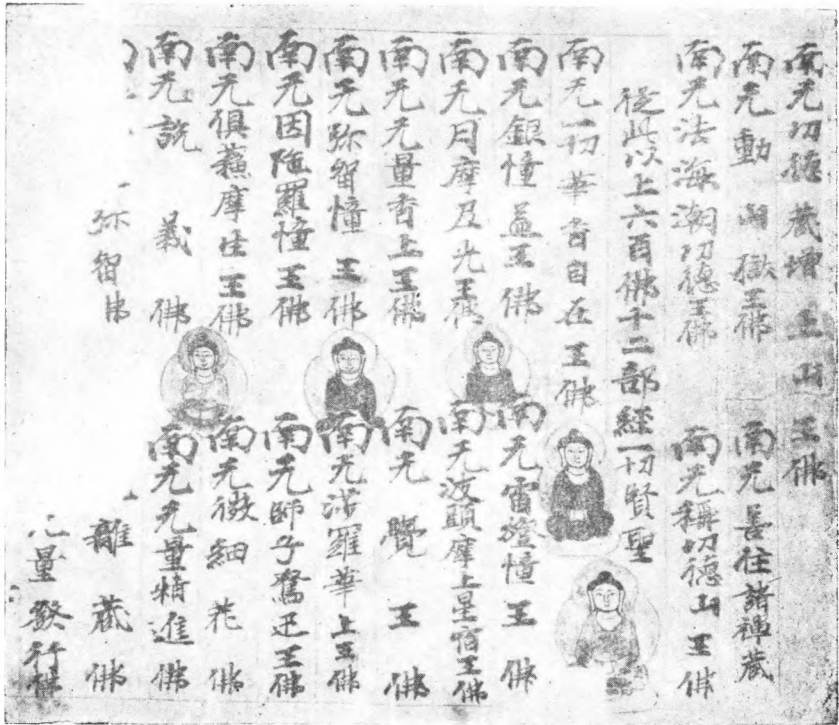 南无功德藏增王山王佛
南无動山嶽王佛 南无善住諸禪藏
南无法海潮功德王佛 南无稱功德山王佛
從此以上六百佛十二部經一切賢聖
南无一切華香自在王佛
南无銀幢盖王佛 南无雷燈幢王佛
南无月摩尼光王佛 南无波頭摩上星宿王佛
南无无量香上王佛 南无覺王佛
南无弥留幢王佛 南无羅華上王佛
南无因陁羅幢王佛 南无師子奮迅王佛
南无俱蘓摩生王佛 南无微細花佛
南无說義佛 南无无量精進佛
弥留佛 離藏佛
量發行佛